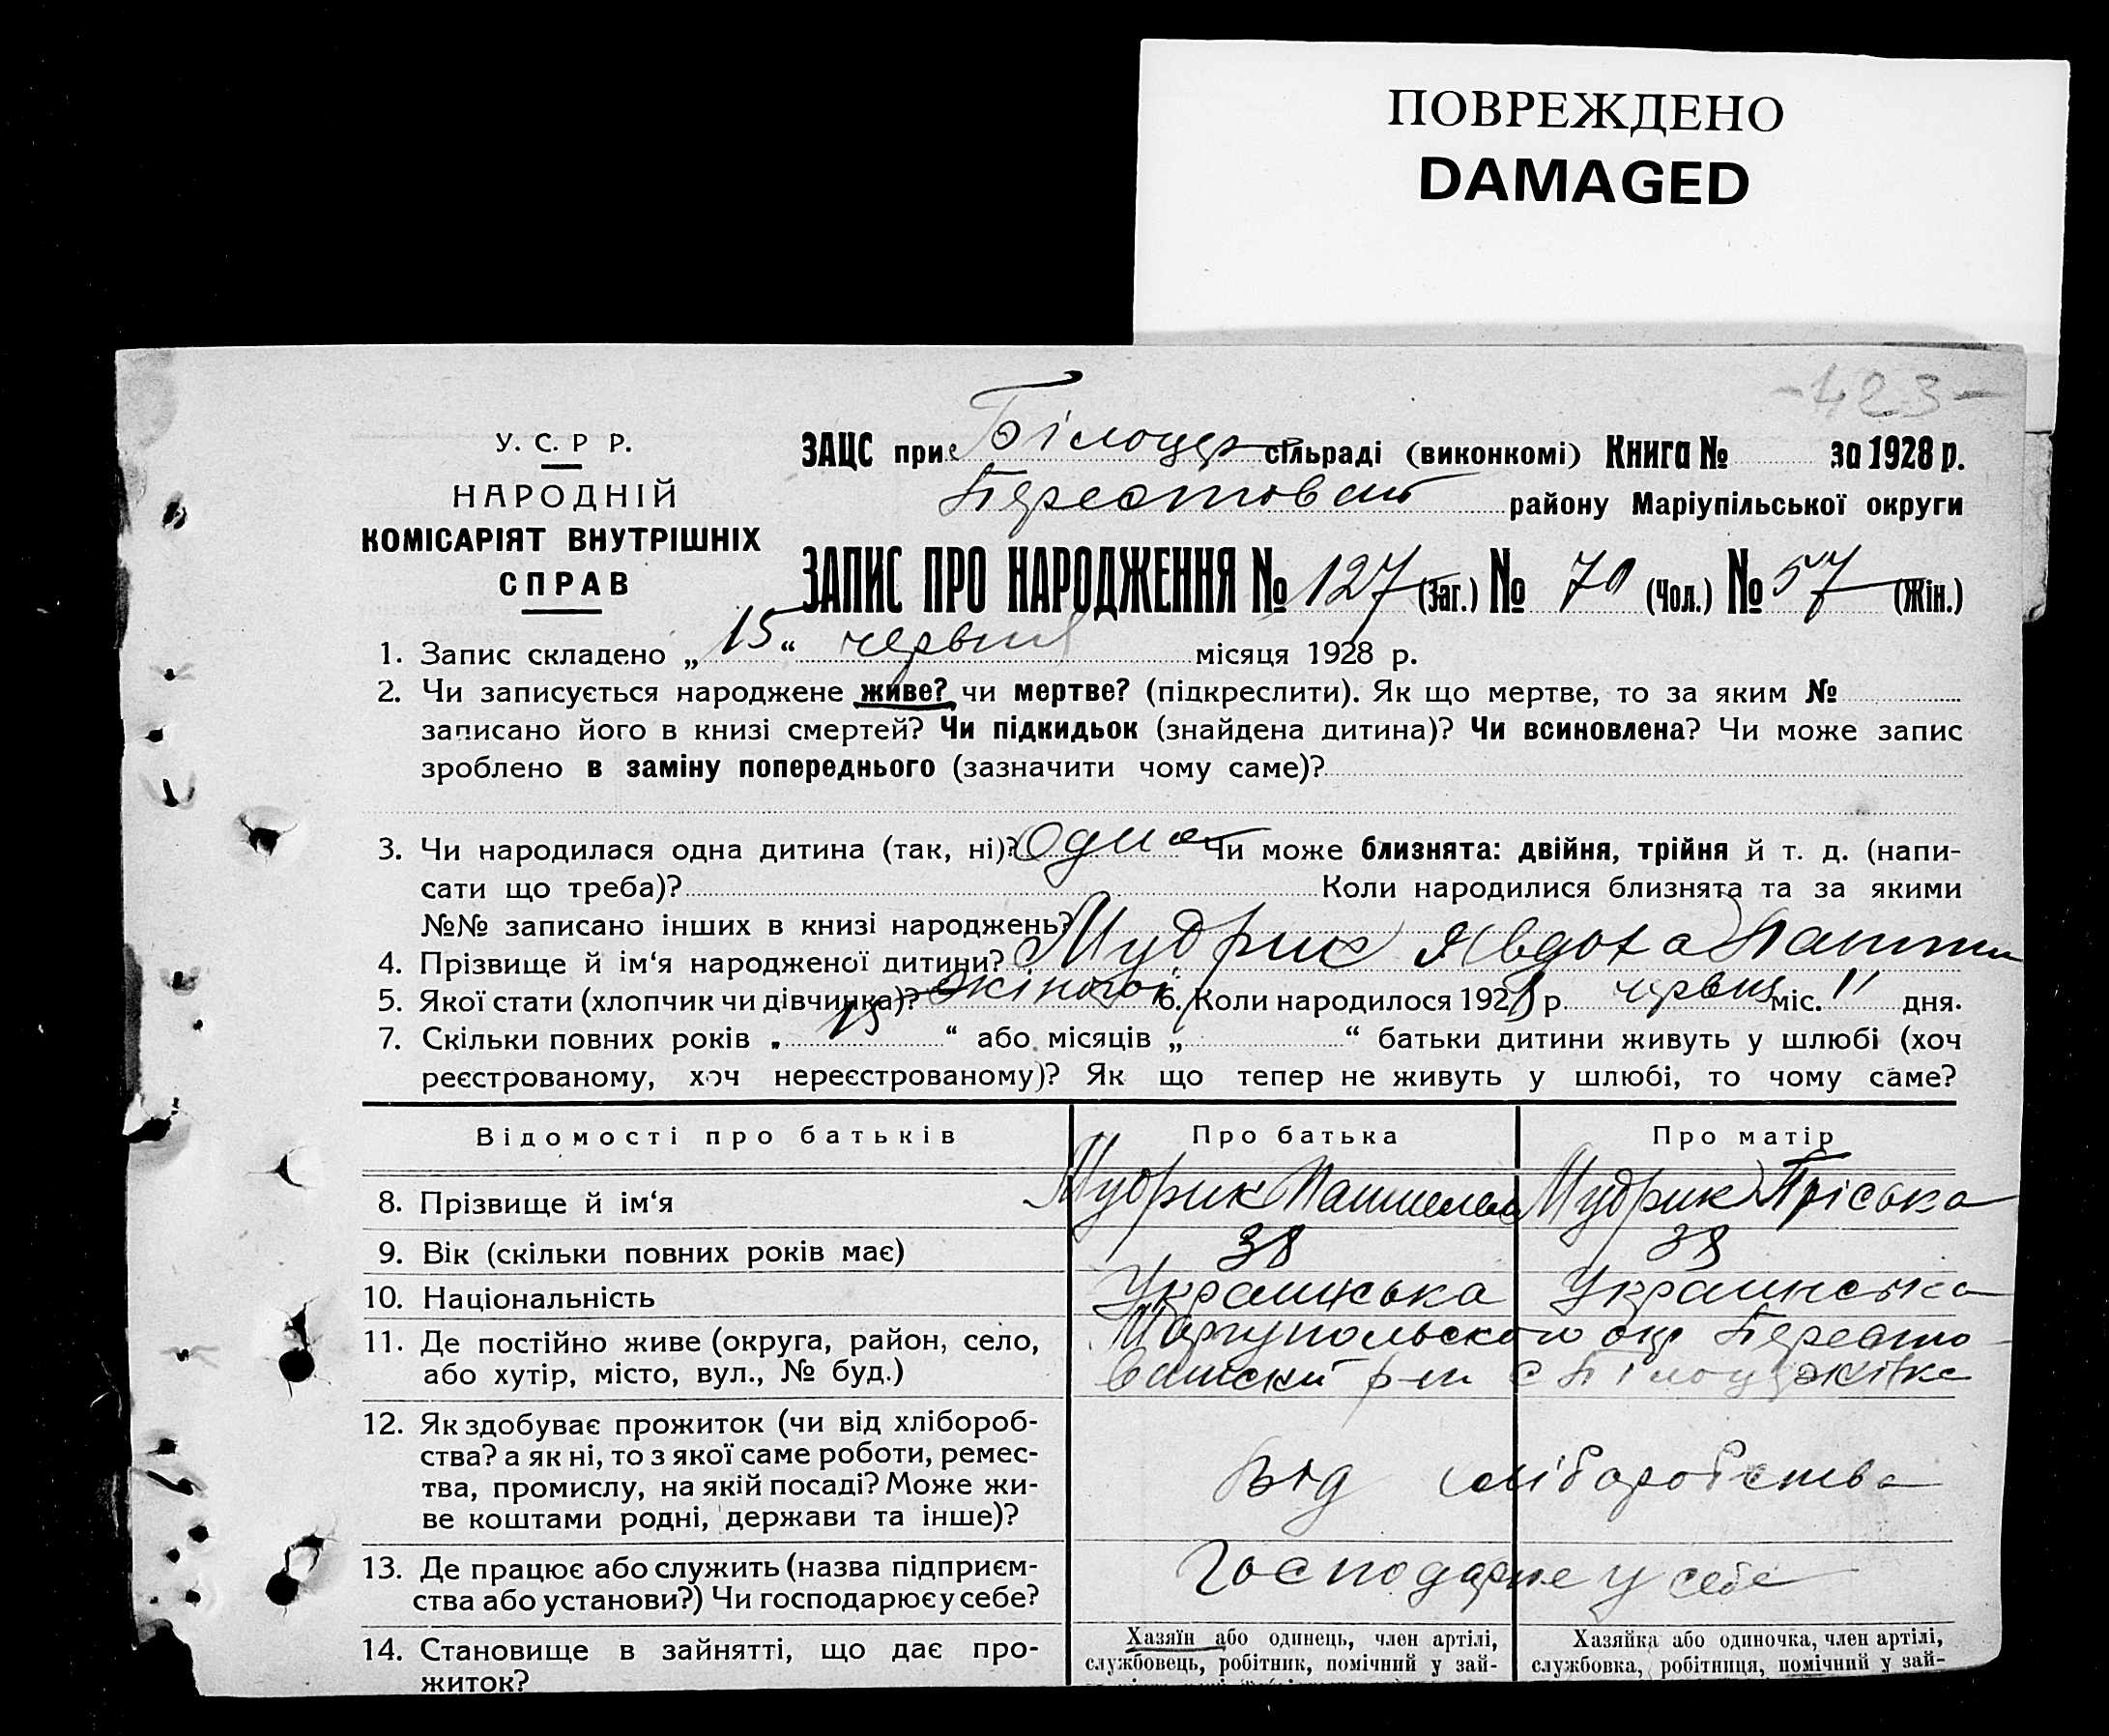 ПОВРЕЖДЕНО
DAMAGED
-423-
У. С. Р Р.
НАРОДНІЙ
КОМІСАРІЯТ ВНУТРІШНІХ
СПРАВ
ЗАЦС при Білоцер сільраді (виконкомі) Книга № за 1928 р.
району Маріупільської округи
ЗАПИС ПРО НАРОДЖЕННЯ № 127 (заг.) № 70 (чол.) № 57 (жін.)
1. Запис складено „ 15 “ червня місяця 1928 р.
2. Чи записується народжене живе? чи мертве? (підкреслити). Як що мертве, то за яким №
записано його в книзі смертей? Чи підкидьок (знайдена дитина)? Чи всиновлена? Чи може запис
зроблено в заміну попереднього (зазначити чому саме)?
3. Чи народилася одна дитина (так, ні)? Одна Чи може близнята: двійня, трійня й т. д. (напи-
сати що треба)? Коли народилися близнята та за якими
№№ записано інших в книзі народжень?
4. Прізвище й ім‘я народженої дитини? Мудрик Явдоха
5. Якої стати (хлопчик чи дівчинка)? жіночої 6. Коли народилося 1928 р. червня міс. 11 дня.
7. Скільки повних років „ 15 “ або місяців „ “ батьки дитини живуть у шлюбі (хоч
реєстрованому, хоч нереєстрованому)? Як що тепер не живуть у шлюбі, то чому саме?
Відомості про батьків Про батька Про матір
8. Прізвище й ім‘я Мудрик Мудрик Пріська
9. Вік (скільки повних років має) 38 38
10. Національність Украинська Украинська
11. Де постійно живе (округа, район, село, Маріупольского окр Бересто-
або хутір, місто, вул., № буд.) р-н с
12. Як здобуває прожиток (чи від хлібороб-
ства? а як ні, то з якої саме роботи, ремес-
тва, промислу, на якій посаді? Може жи- Від хліборобства
ве коштами родні, держави та інше)?
13. Де працює або служить (назва підприєм- Господарює у себе
ства або установи?) Чи господарює у себе?
14. Становище в зайнятті, що дає про- Хазяїн або одинець, член артілі, Хазяйка або одиночка, член артілі,
житок? службовець, робітник, помічний у зай- службовка, робітниця, помічний у зай-